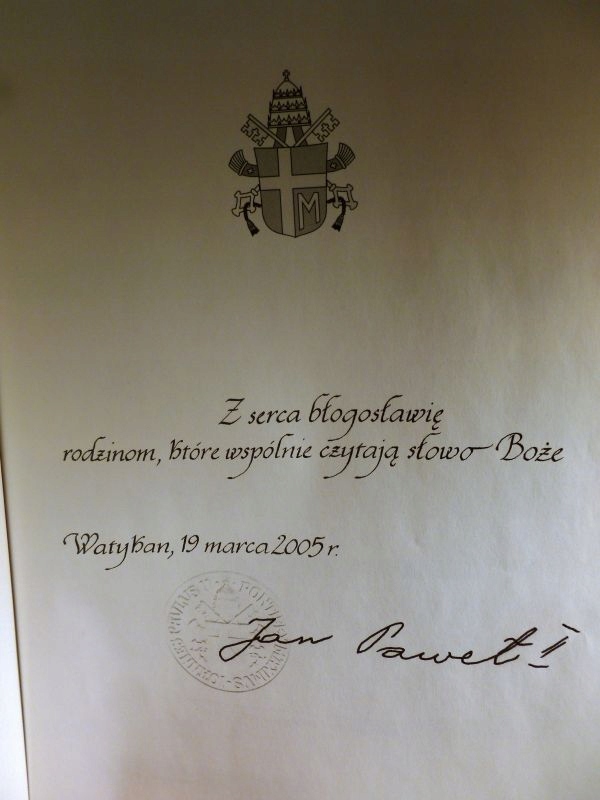 M
Z serca błogosławię
rodzinom, które wspólnie czytają słowo Boże
Watykan, 19 marca 2005 r.
Jan Paweł II